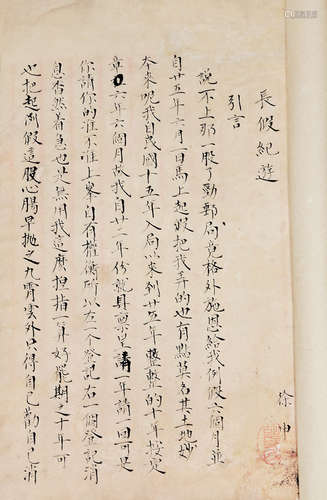 長假紀遊
徐申
引言
說不上那一股了勁郵局竟格外施恩給我例假六個月並
自廿五年六月一日馬上起假把我弄的也有點莫名其土地妙
本來呢我自民國十五年入局以來到廿五年整整的十年按定
章六年六個月故我自廿二年份就具稟呈請一年請一回可是
你請你的准不准上峯自有權衡所以左一個登記右一個登記消
息杳然着急也是無用我這麼担指一算好罷期之十年可
也把起例假這股心腸早拋之九霄雲外只得自己勸自己消